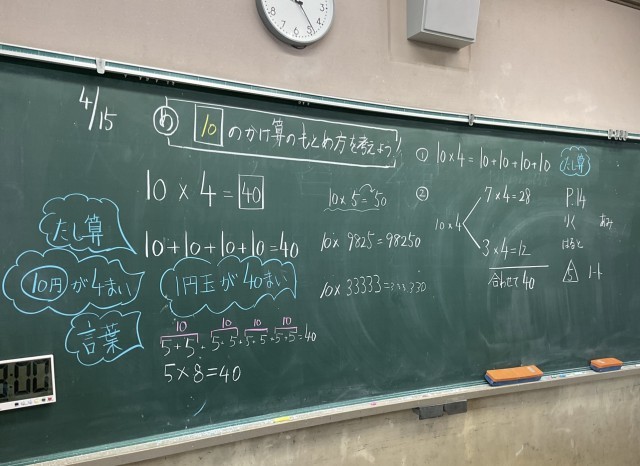 4/15
め 10 のかけ算のもとめ方を考えよう!
10 × 4 = 40
10+10+10+10=40
たし算
10円が4まい
言葉
1円玉が40まい
10 10 10 10
5+5+5+5+5+5+5+5=40
5×8=40
10×5=50
10×9825=98250
10×33333=333330
① 10×4=10+10+10+10
たし算
②
10×4
7×4=28
3×4=12
合わせて40
P.14
りく
あみ
はると
:00